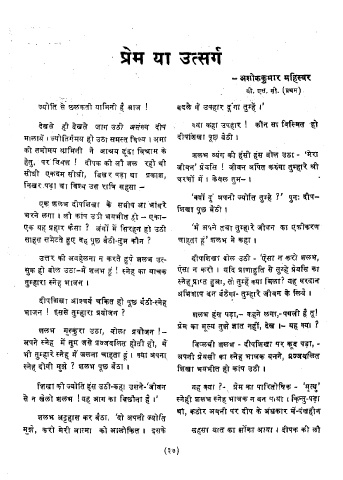 प्रेम या उत्सर्ग
– अशोककुमार महिस्वर
बी. एस. सी. (प्रथम)
ज्योति से छलकती यामिनी है आज !
देखते ही देखते जाग उठी असंख्य दीप
मालायें । ज्योतिर्गमय हो उठा समस्त विश्व । अमा
की तमोमय यामिनी ने आश्रय ढूंढा विश्राम के
हेतु, पर विफल ! दीपक की लौ जल रही थी
सीधी एकदम सीधी, छिटक पड़ा था प्रकाश,
निखर पड़ा था विश्व उस रात्रि सहसा –
एक शलभ दीपशिखा के समीप आ भांवरें
भरने लगा । लौ कांप उठी भयभीत हो – एका–
एक यह प्रहार कैसा ? अंगों में सिहरन हो उठी
साहस समेटते हुए वह पूछ बैठी–तुम कौन ?
उत्तर की अवहेलना न करते हुये शलभ उत्-
सुक हो बोल उठा–मैं शलभ हूं ! स्नेह का याचक
तुम्हारा स्नेह भाजन ।
दीपशिखा आश्चर्य चकित हो पूछ बैठी–स्नेह
भाजन ! इससे तुम्हारा प्रयोजन ?
शलभ मुस्कुरा उठा, बोला प्रयोजन !–
अपने स्नेह में तुम जैसे प्रज्जवलित होती हो, मैं
भी तुम्हारे स्नेह में जलना चाहता हूं । क्या अपना
स्नेह दोगी मुझे ? शलभ पूछ बैठा ।
शिखा की ज्योति हंस उठी–कहा उसने–'जीवन
से न खेलो शलभ ! यह आग का बिछौना है ।'
शलभ अट्टहास कर बैठा, 'दो अपनी ज्योति
मुझे, करो मेरी आत्मा को आलोकित । इसके
बदले में उपहार दूंगा तुम्हें ।'
क्या कहा उपहार ! कौन सा विस्मित हो
दीपशिखा पूछ बैठी ।
शलभ व्यंग की हंसी हंस बोल उठा– 'मेरा
जीवन' प्रेयसि ! जीवन अर्पित करूंगा तुम्हारे श्री
चरणों में । केवल तुम– ।
'क्यों दूं अपनी ज्योति तुम्हें ?' पुनः दीप–
शिखा पूछ बैठी ।
'मैं अपने तथा तुम्हारे जीवन का एकीकरण
चाहता हूं' शलभ ने कहा ।
दीपशिखा बोल उठी – 'ऐसा न करो शलभ,
ऐसा न करो । यदि प्राणाहुति से तुम्हे प्रेयसि का
स्नेह प्राप्त हुआ, तो तुम्हें क्या मिला? यह वरदान
अभिशाप बन बैठेगा– तुम्हारे जीवन के लिये ।
शलभ हंस पड़ा,– कहने लगा,–पगली है तू!
प्रेम का मूल्य तुझे ज्ञात नहीं, देख ।– यह क्या ?
विलम्बी शलभ – दीपशिखा पर कूद पड़ा –
अपनी प्रेयसी का स्नेह भाजक बनने, प्रज्जवलित
शिखा भयभीत हो कांप उठी ।
यह क्या ?– प्रेम का पारितोषिक – 'मृत्यु'
स्नेही शलभ स्नेह भाजक न बन पाया । किन्तु–पड़ा
था, कठोर अवनी पर दीप के अंधकार में–पंखहीन
सहसा वात का झोंका आया । दीपक की लौ
(२७)